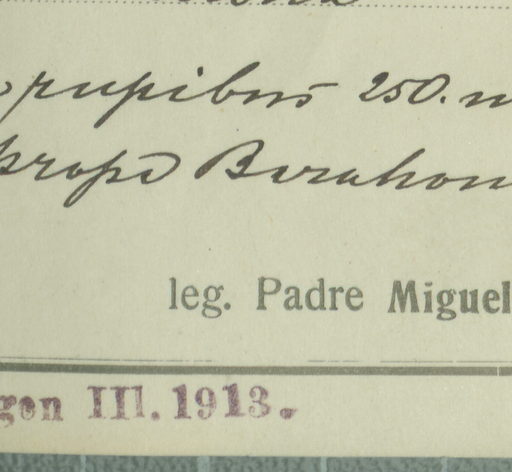 rupibus 250. m
prope Barahon
leg. Padre Miguel
gen III. 1913.